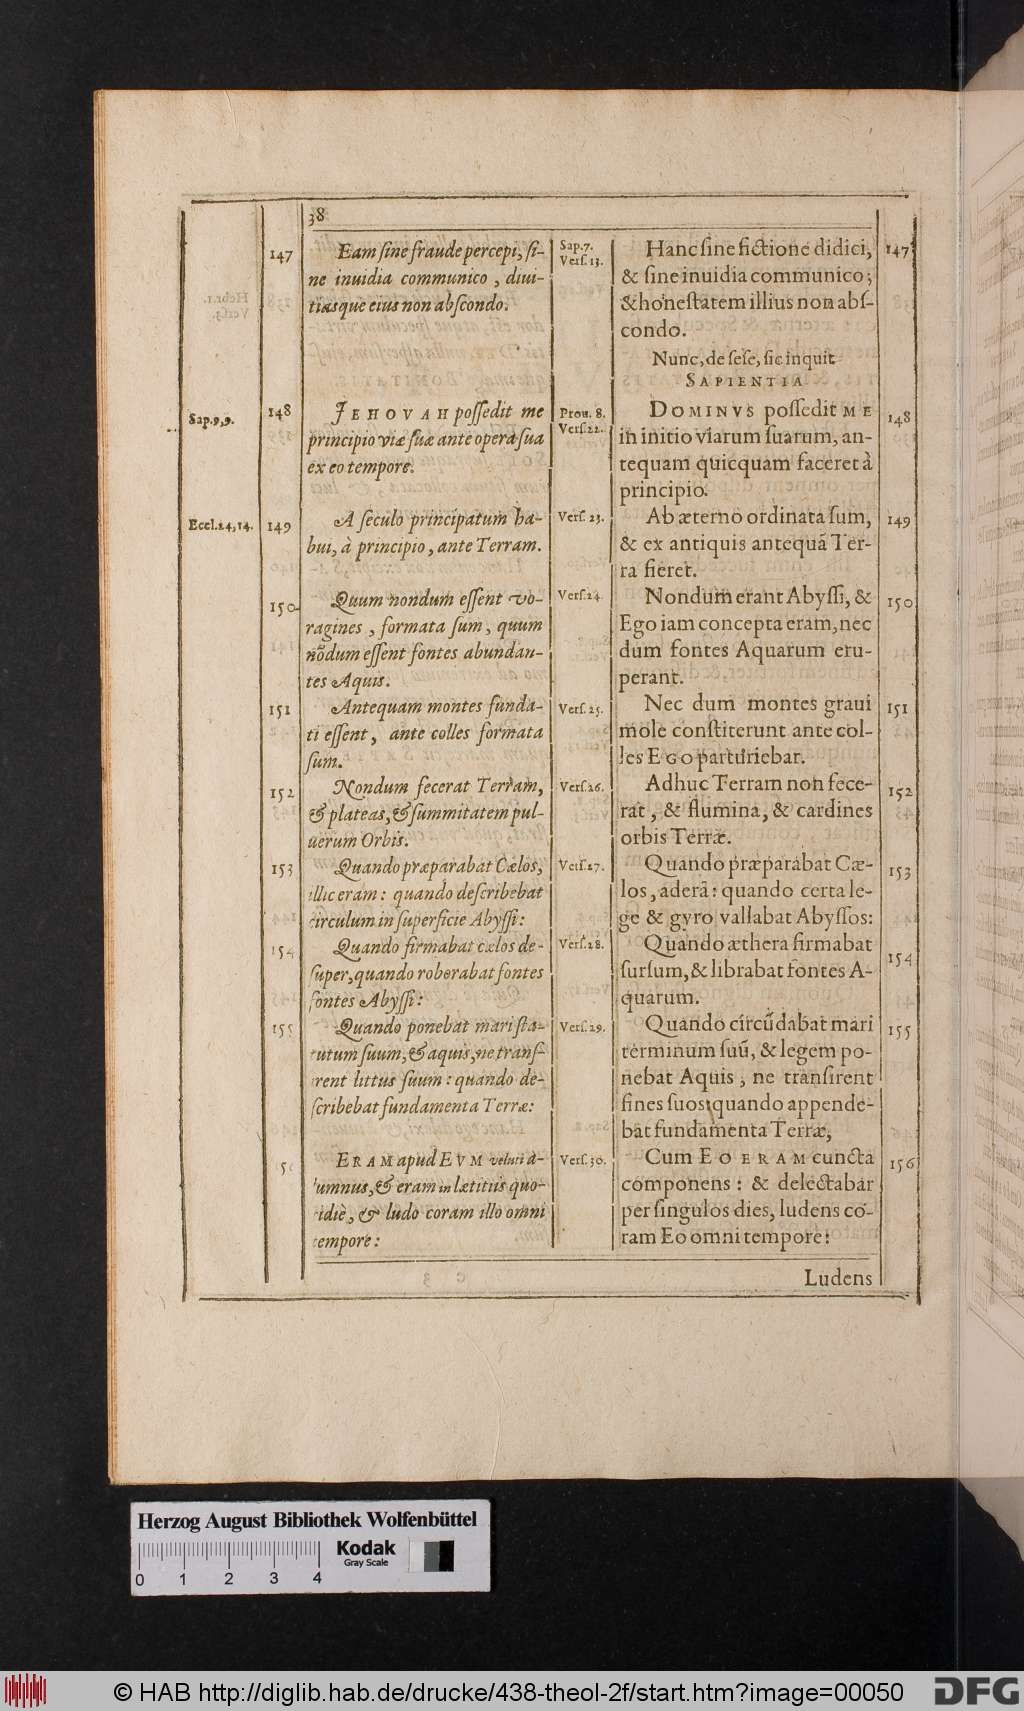 38
147
Eam sine fraude percepi, si-
ne inuidia communico, diui-
tiasque eius non abscondo.
Sap. 9, 9.
148
JEHOVAH possedit me
principio viæ suæ ante opera sua
ex eo tempore.
Eccl. 24, 14.
149
A seculo principatum ha-
bui, à principio, ante Terram.
150
Quum nondum essent vo-
ragines, formata sum, quum
nōdum essent fontes abundan-
tes Aquis.
151
Antequam montes funda-
ti essent, ante colles formata
sum.
152
Nondum fecerat Terram,
& plateas, & summitatem pul-
uerum Orbis.
153
Quando præparabat Cælos,
illic eram: quando describebat
circulum in superficie Abyssi:
154
Quando firmabat cælos de-
super, quando roborabat fontes
fontes Abyssi:
155
Quando ponebat mari sta-
tutum suum, & aquis, ne trans-
irent littus suum: quando de-
scribebat fundamenta Terræ:
ERAM apud EVM veluti a-
lumnus, & eram in lætitiis quo-
tidiè, & ludo coram illo omni
tempore:
Sap. 7.
Vers. 13.
Hanc sine fictione didici,
& sine inuidia communico;
& honestatem illius non abs-
condo.
147
Nunc, de sese, sic inquit
SAPIENTIA
Prou. 8.
Vers. 22.
DOMINVS possedit ME
in initio viarum suarum, an-
tequam quicquam faceret à
principio.
148
Vers. 23.
Ab æterno ordinata sum,
& ex antiquis antequā Ter-
ra fieret.
149
Vers. 24.
Nondum erant Abyssi, &
Ego iam concepta eram, nec
dum fontes Aquarum eru-
perant.
150
Vers. 25.
Nec dum montes graui
mole constiterunt ante col-
les EGO parturiebar.
151
Vers. 26.
Adhuc Terram non fece-
rat, & flumina, & cardines
orbis Terræ.
152
Vers. 27.
Quando præparabat Cæ-
los, aderā: quando certa le-
ge & gyro vallabat Abyssos:
153
Vers. 28.
Quando æthera firmabat
sursum, & librabat fontes A-
quarum.
154
Vers. 29.
Quando circūdabat mari
terminum suū, & legem po-
nebat Aquis, ne transirent
fines suos: quando appende-
bat fundamenta Terræ,
155
Vers. 30.
Cum EO ERAM cuncta
componens: & delectabar
per singulos dies, ludens co-
ram Eo omni tempore:
156
Ludens
Herzog August Bibliothek Wolfenbüttel
Kodak
Gray Scale
0 1 2 3 4
© HAB http://diglib.hab.de/drucke/438-theol-2f/start.htm?image=00050
DFG